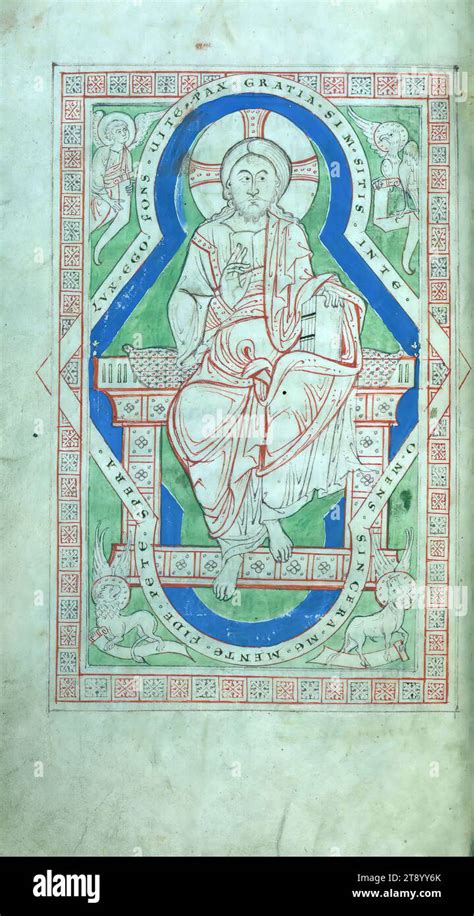 LVX·EGO·FONS·UITE·PAX·GRATIA·SIM·SITIS·INTE
OMENS·SINCERA·ME·MENTE·FIDE·PETE·SPERA·
alamy
Image ID: 2T8YY6K
www.alamy.com